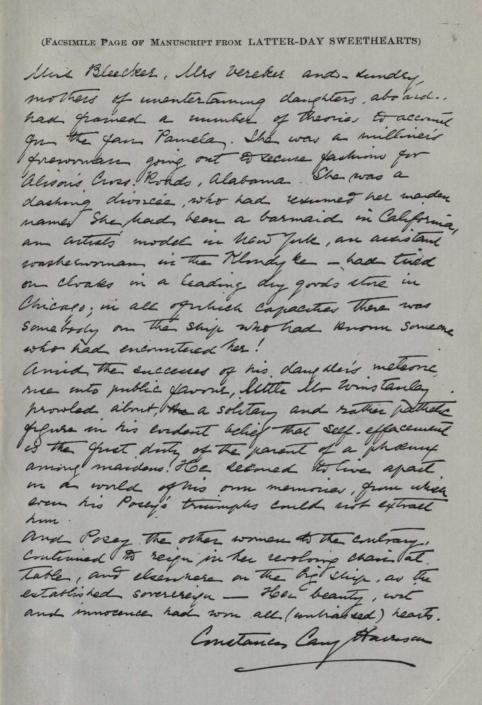 (FACSIMILE PAGE OF MANUSCRIPT FROM LATTER-DAY SWEETHEARTS)
Miss Bleecker, Mrs Vereker and sundry
mothers of unentertaining daughters, aboard..
had framed a number of theories to account
for the fair Pamela. She was a milliner's
forewoman going out to secure fashions for
Alison's Cross Roads, Alabama. She was a
dashing divorcée, who had resumed her maiden
name. She had been a barmaid in California,
an artist's model in New York, an assistant
washerwoman in the Klondyke — had tried
on cloaks in a leading dry goods store in
Chicago; in all of which capacities there was
somebody on the ship who had known someone
who had encountered her!
Amid the successes of his daughter's meteoric
rise into public favour, little Mr Winstanley
prowled about, a solitary and rather pathetic
figure in his evident belief that self-effacement
is the first duty of the parent of a phoenix
among maidens. He seemed to live apart
in a world of his own memories from which
even his Posey's triumphs could not extract
him.
And Posey, the other women to the contrary,
continued to reign in her revolving chair at
table, and elsewhere on the big ship, as the
established sovereign — Her beauty, wit
and innocence had won all (unbiassed) hearts.
Constance Cary Harrison